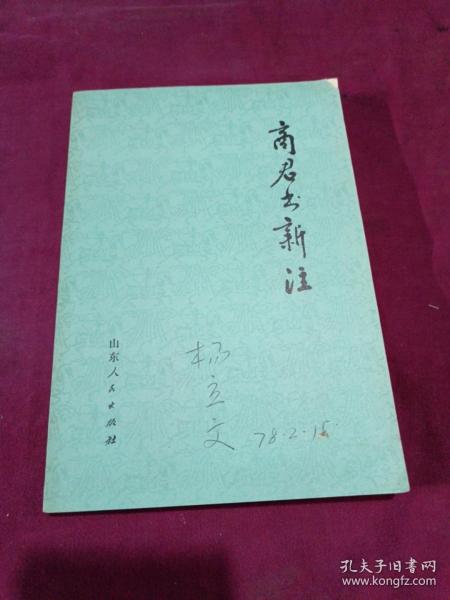 商君书新注
山东人民出版社
杨立文
78.2.15
孔夫子旧书网
www.kongfz.com